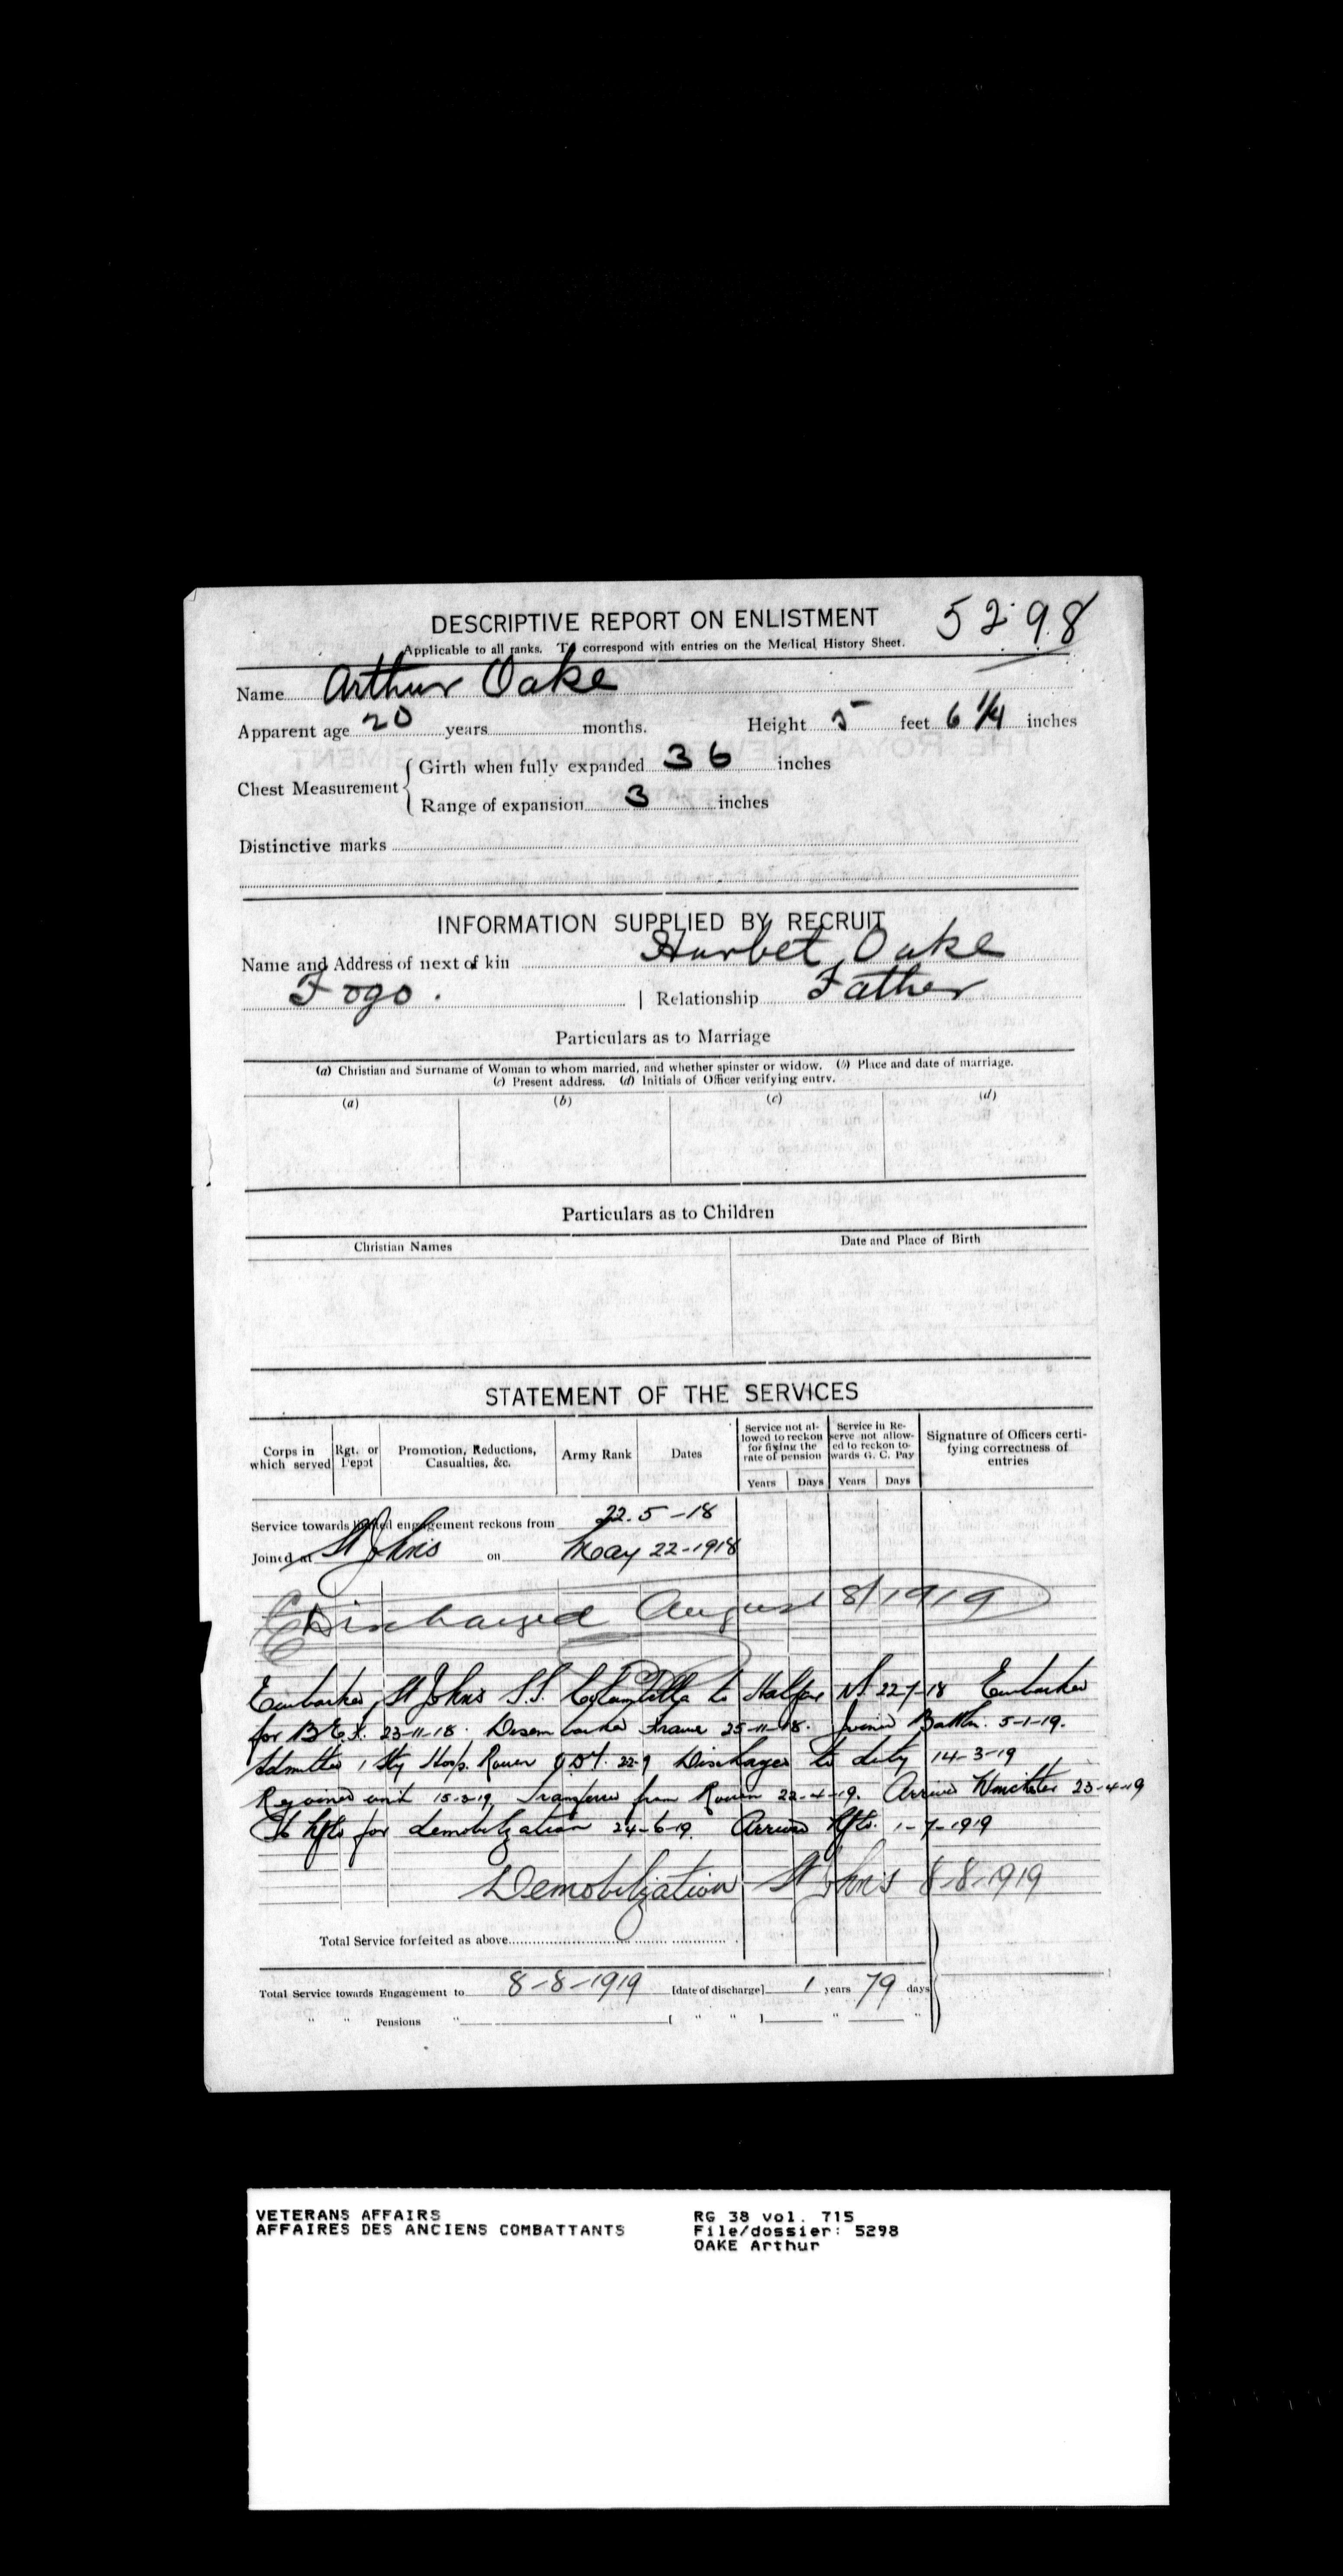 DESCRIPTIVE REPORT ON ENLISTMENT 5298
Applicable to all ranks. To correspond with entries on the Medical History Sheet.
Name Arthur Oake
Apparent age 20 years months. Height 5 feet 6 1/4 inches
Chest Measurement { Girth when fully expanded 36 inches
Range of expansion 3 inches
Distinctive marks
INFORMATION SUPPLIED BY RECRUIT
Name and Address of next of kin Harbet Oake
Fogo. | Relationship Father
Particulars as to Marriage
(a) Christian and Surname of Woman to whom married, and whether spinster or widow. (b) Place and date of marriage.
(c) Present address. (d) Initials of Officer verifying entry.
(a) (b) (c) (d)
Particulars as to Children
Christian Names Date and Place of Birth
STATEMENT OF THE SERVICES
Corps in which served Rgt. or Depot Promotion, Reductions, Casualties, &c. Army Rank Dates Service not allowed to reckon for fixing the rate of pension Service in Reserve not allowed to reckon towards G. C. Pay Signature of Officers certifying correctness of entries
Years Days Years Days
Service towards limited engagement reckons from 22-5-18
Joined at St Johns on May 22-1918
Discharged August 8/1919
Embarked St Johns S.S. to Halifax N.S. 22-7-18 Embarked
for B.E.F. 23-11-18. Disembarked France 25-11-18. Joined Battn. 5-1-19.
Admitted 1 Sty Hosp. Rouen Discharged to duty 14-3-19
Rejoined unit 15-3-19 Transferred from Rouen 22-4-19. Arrived Winchester 23-4-19
To Nfld for demobilization 24-6-19. Arrived Nfld. 1-7-1919
Demobilization St Johns 8-8-1919
Total Service forfeited as above
Total Service towards Engagement to 8-8-1919 [date of discharge] 1 years 79 days
" " Pensions " [ " " ] " "
VETERANS AFFAIRS RG 38 vol. 715
AFFAIRES DES ANCIENS COMBATTANTS File/dossier: 5298
OAKE Arthur